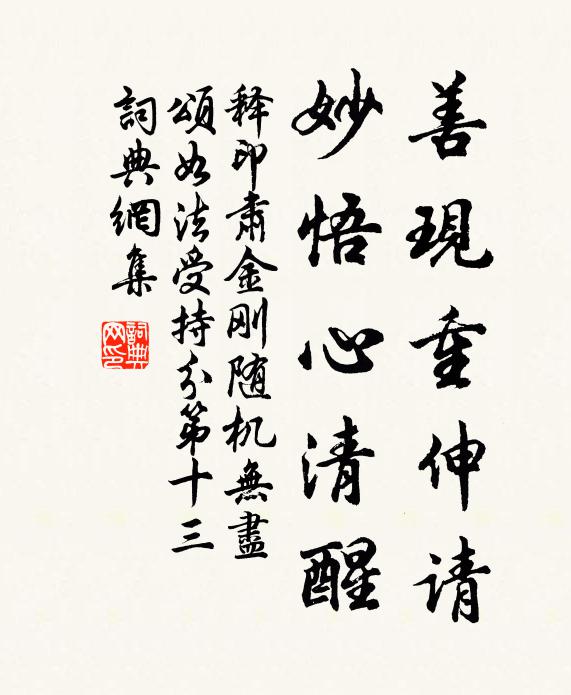 善現重伸请
妙悟心清醒
释印肃金刚随机無盡
頌如法受持分第十三
詞典網集
詞典网印